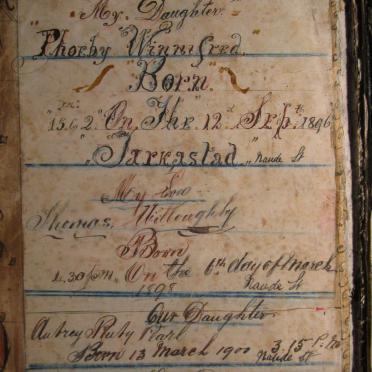 "My Daughter"
Phoeby Winnifred.
"Born"
"On The "12" Sep. 1896
"Tarkastad." Naude St
My Son
Thomas, Willoughby
Born
4.30 pm. On the 6th day of March
1898 Naude St
Our Daughter
Autrey Ruby Pearl
Born 13 March 1900 3.15 P.M
Naude St